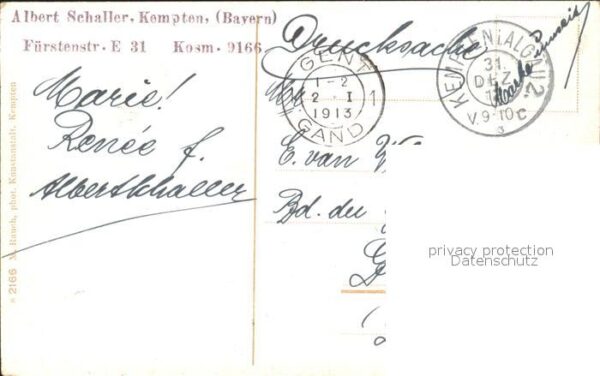 Albert Schaller, Kempten, (Bayern)
Fürstenstr. E 31 Kosm. 9166
Marie!
Renée f.
Albert Schaller
* 2166 M. Rauch, phot. Kunstanstalt, Kempten
Drucksache
GENT
1-2
2-I
1913
1
GAND
KEMPTEN i. ALGÄU 2.
31.
DEZ.
V.9-10
E. van
Bd. du
privacy protection
Datenschutz